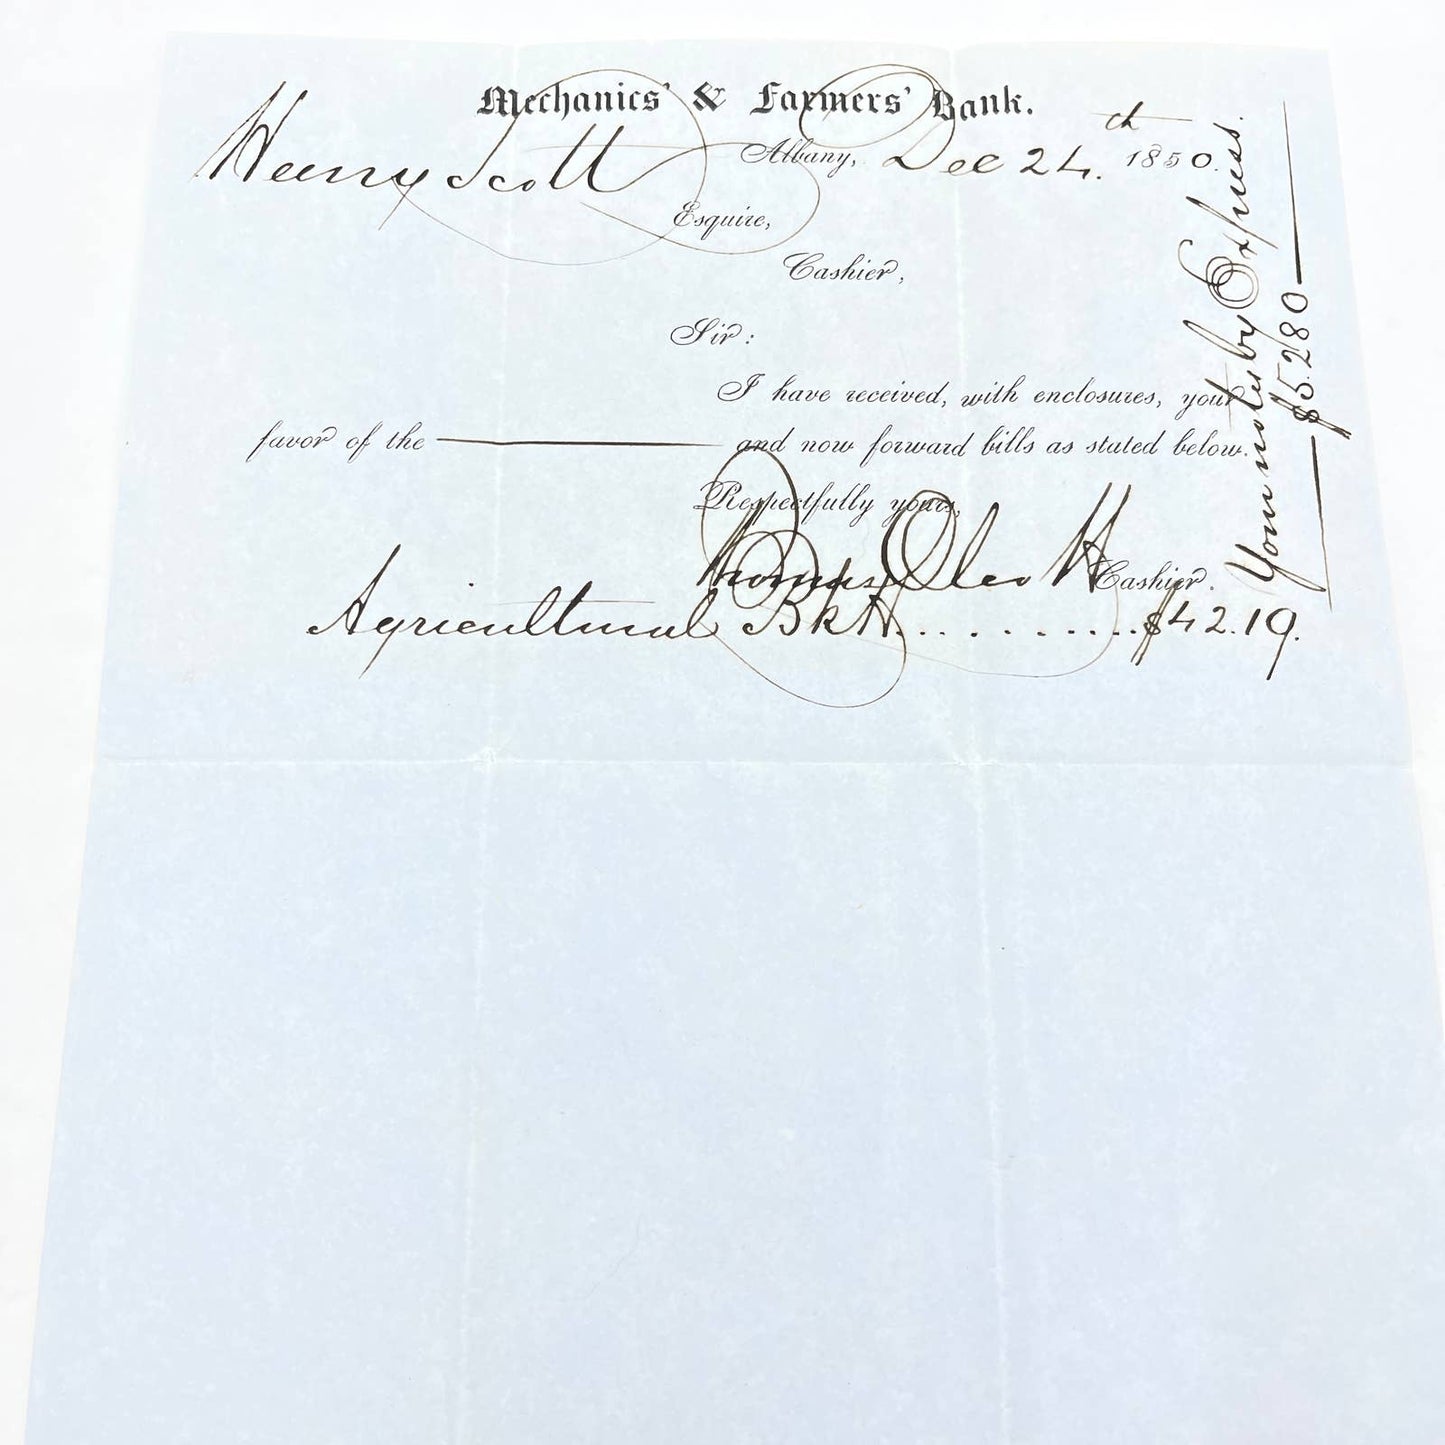 Mechanics' & Farmers' Bank.
Albany, Dec 24th. 1850.
Henry Scott
Esquire,
Cashier,
Sir:
I have received, with enclosures, your
favor of the and now forward bills as stated below.
Respectfully yours,
Thomas Olcott Cashier.
Agricultural Bk ........... $42.19.
Your notes by Express.
$5.280